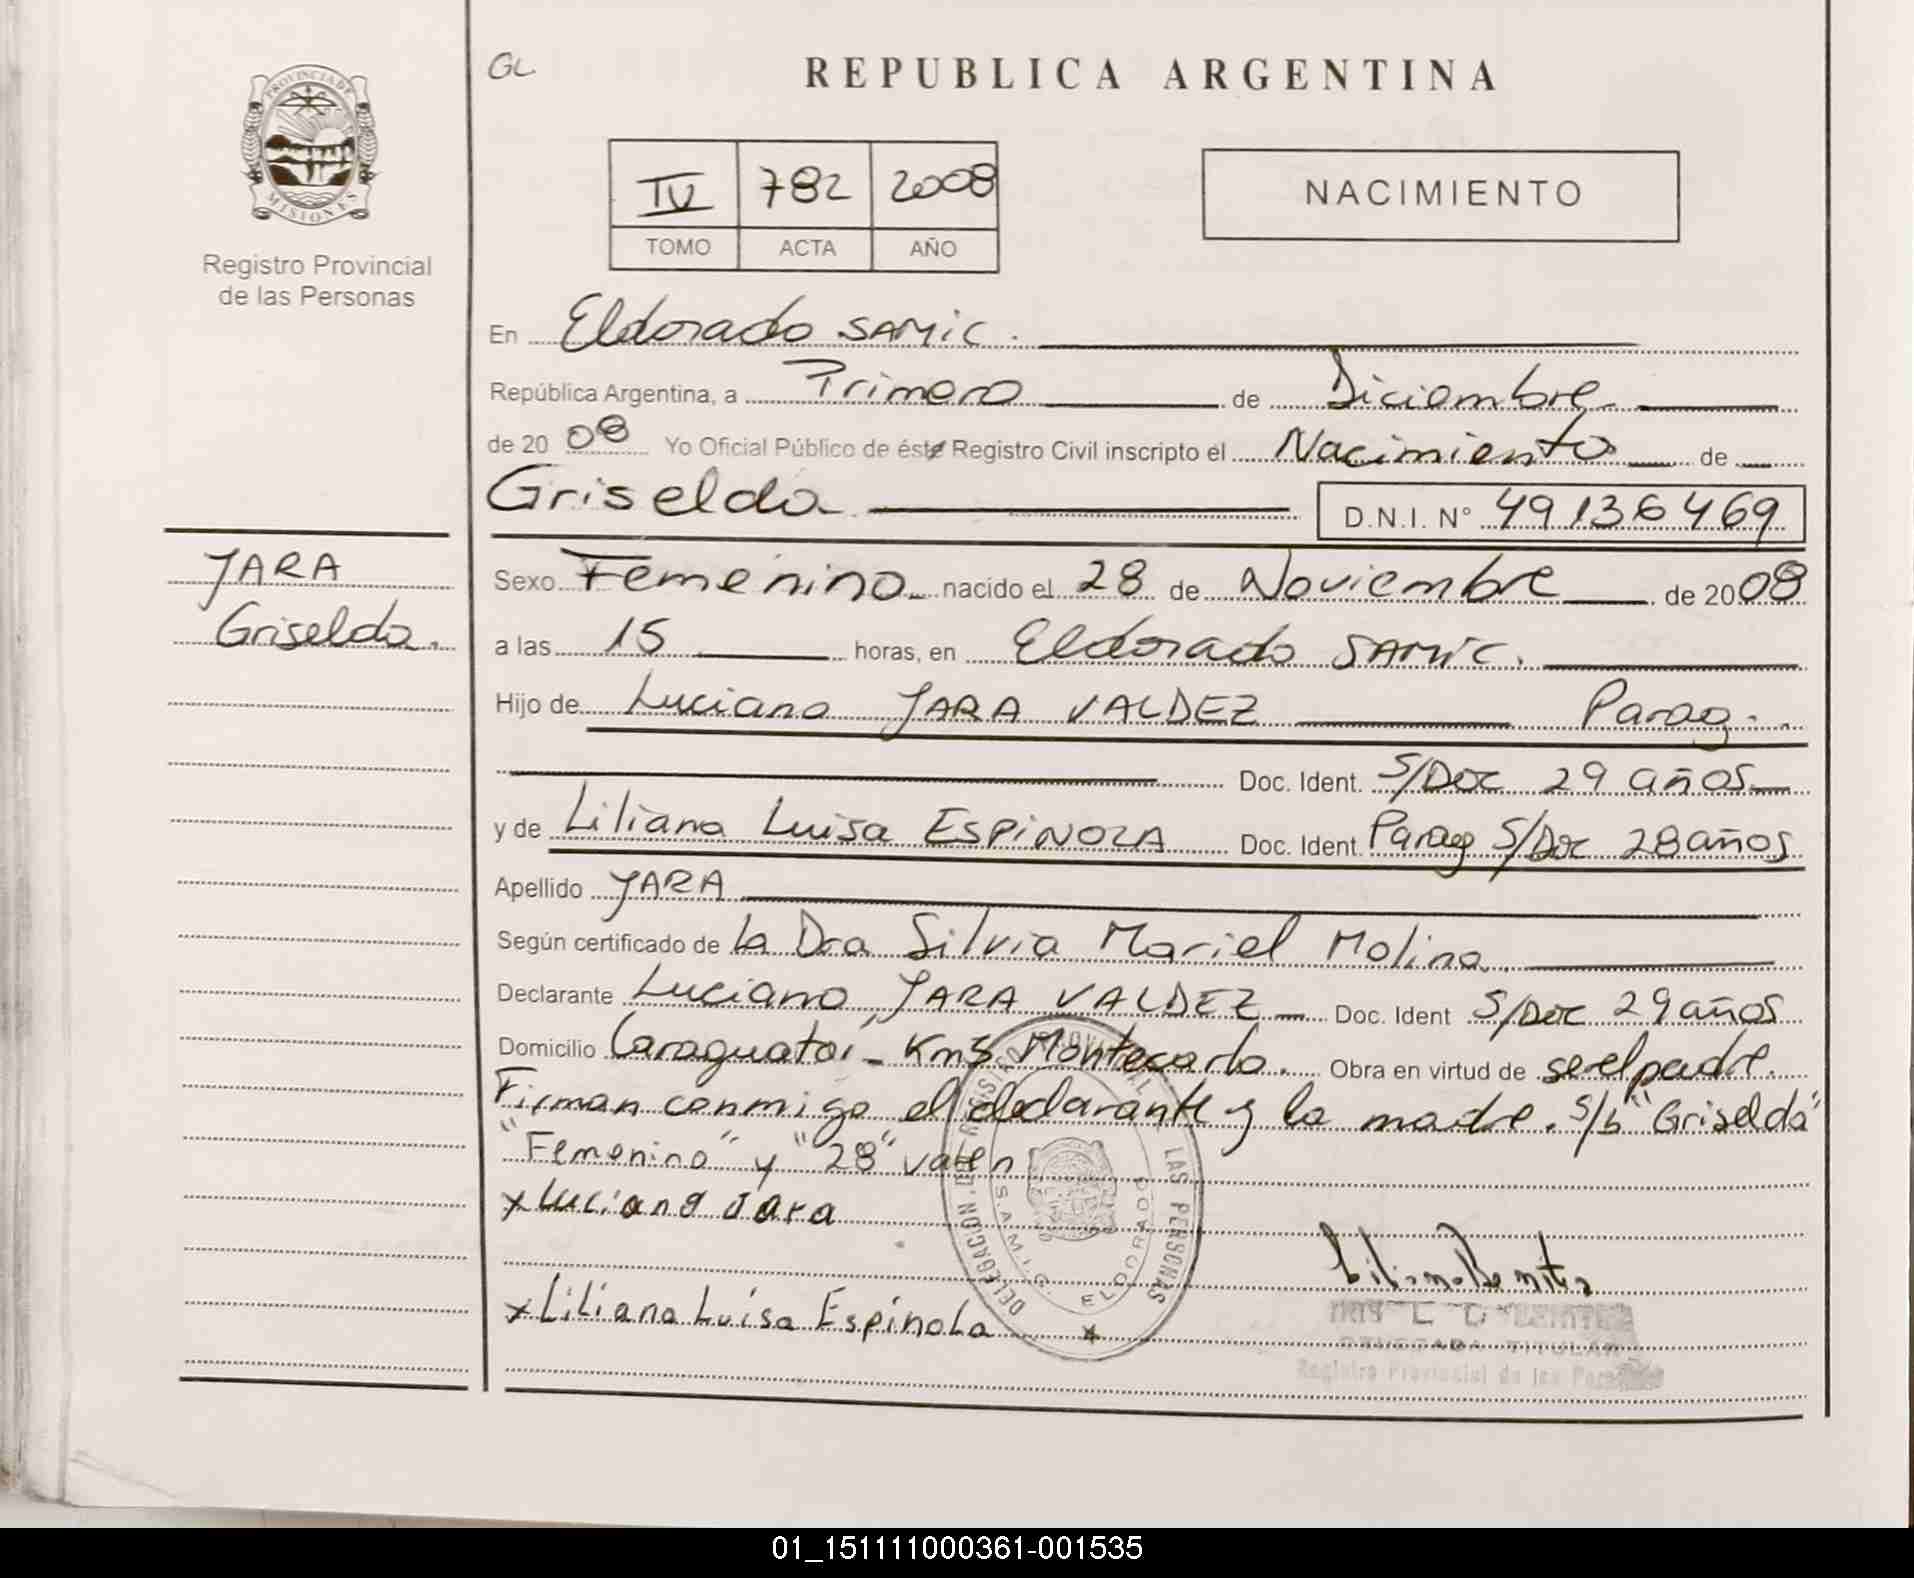 GL
REPUBLICA ARGENTINA
PROVINCIA DE
MISIONES
Registro Provincial
de las Personas
IV 782 2008
TOMO ACTA AÑO
NACIMIENTO
En Eldorado SAMIC.
República Argentina, a Primero de Diciembre
de 20 08 Yo Oficial Público de éste Registro Civil inscripto el Nacimiento de
Griselda D.N.I. N° 49136469
JARA
Griselda.
Sexo Femenino nacido el 28 de Noviembre de 2008
a las 15 horas, en Eldorado SAMIC.
Hijo de Luciano JARA VALDEZ Parag.
Doc. Ident. S/Doc 29 años
y de Liliana Luisa ESPINOLA Doc. Ident. Parag S/Doc 28 años
Apellido JARA
Según certificado de la Dra Silvia Mariel Molina
Declarante Luciano JARA VALDEZ Doc. Ident S/Doc 29 años
Domicilio Caraguataí - Km5 Montecarlo. Obra en virtud de ser el padre.
Firman conmigo el declarante y la madre. S/b "Griselda"
"Femenino" y "28" valen
x Luciano Jara
x Liliana Luisa Espínola
DELEGACION DEL REGISTRO PROVINCIAL DE LAS PERSONAS
S.A.M.I.C. ELDORADO
DELEGADA TITULAR
Registro Provincial de las Personas
01_151111000361-001535